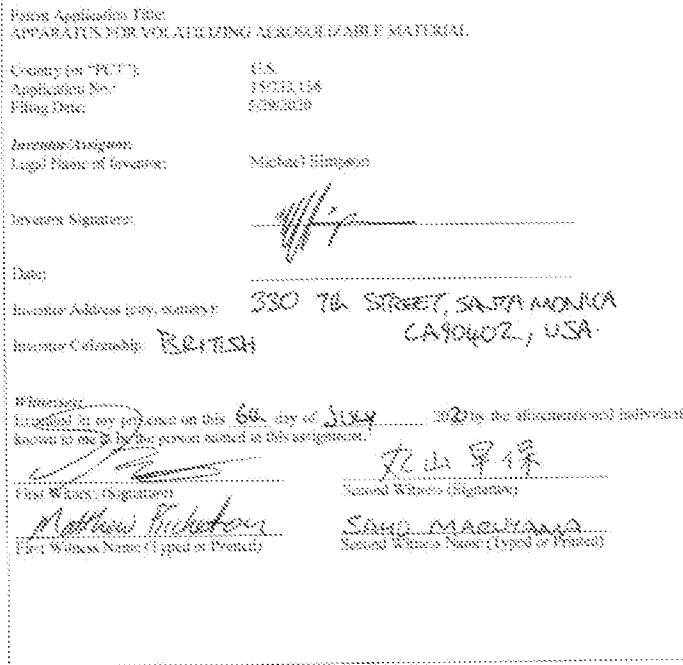 Patent Application Title:
APPARATUS FOR VOLATILIZING AEROSOLIZABLE MATERIAL
Country (or "PCT"): U.S.
Application No.:
Filing Date: 5/29/2020
Inventor/Assignor:
Legal Name of Inventor: Michael Simpson
Inventor Signature:
Date:
Inventor Address (city, country): 330 7th STREET, SANTA MONICA
CA90402, USA.
Inventor Citizenship: BRITISH
Witnesses:
Executed in my presence on this 6th day of JULY 2020 by the aforementioned individual
known to me to be the person named in this assignment.
丸山 早保
First Witness (Signature) Second Witness (Signature)
Matthew SAHO MARUYAMA
First Witness Name (Typed or Printed) Second Witness Name (Typed or Printed)